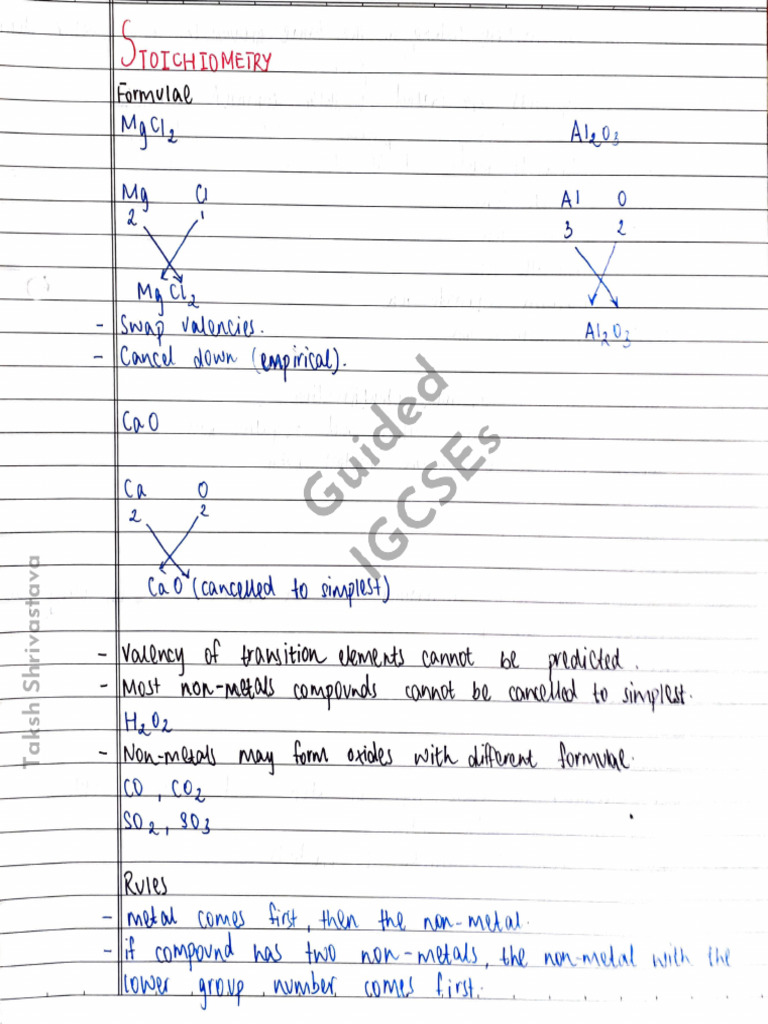 STOICHIOMETRY
Formulae
MgCl2 Al2O3
Mg Cl Al O
2 1 3 2
MgCl2 Al2O3
- Swap valencies.
- Cancel down (empirical).
CaO
Ca O
2 2
CaO (cancelled to simplest)
- Valency of transition elements cannot be predicted.
- Most non-metals compounds cannot be cancelled to simplest.
H2O2
- Non-metals may form oxides with different formulae.
CO, CO2
SO2, SO3
Rules
- metal comes first, then the non-metal.
- if compound has two non-metals, the non-metal with the
lower group number comes first.
Guided
IGCSEs
Taksh Shrivastava